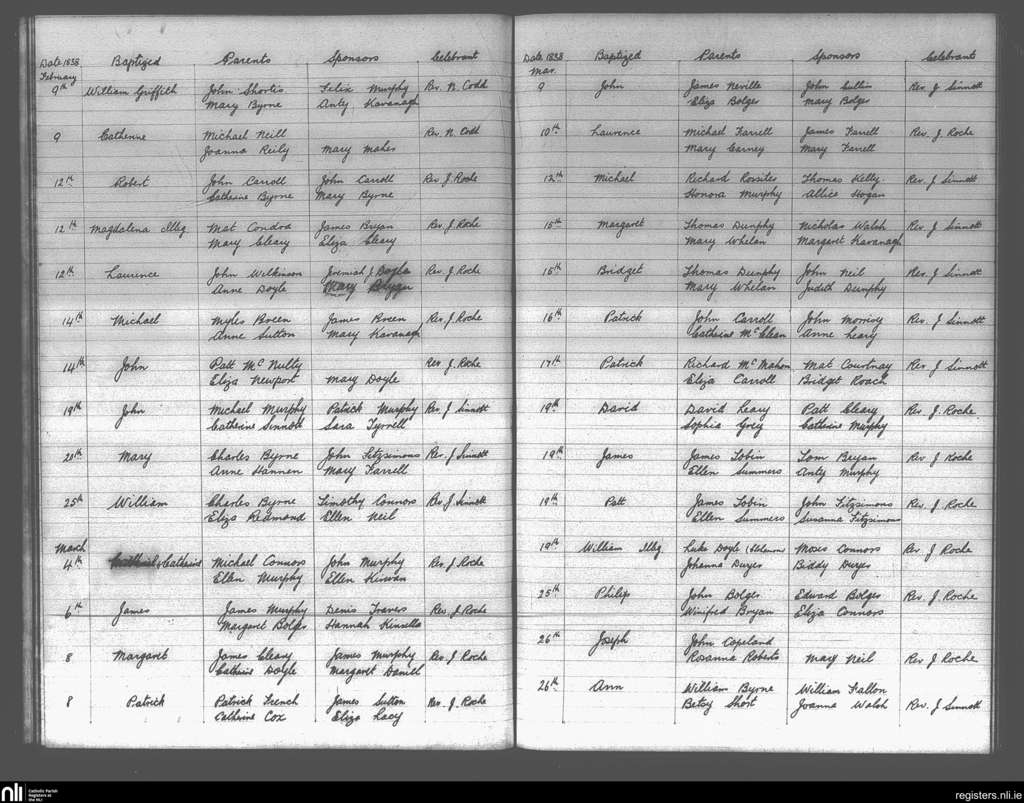 Date 1838 Baptized Parents Sponsors Celebrant
February
9th William Griffith John Shortis Felix Murphy Rev. N. Codd
Mary Byrne Anty Kavanagh
9 Catherine Michael Neill Rev. N. Codd
Joanna Reily Mary Maher
12th Robert John Carroll John Carroll Rev J. Roche
Catherine Byrne Mary Byrne
12th Magdalena Illeg Mat Condra James Bryan Rev. J. Roche
Mary Cleary Eliza Cleary
12th Laurence John Wilkinson Jeremiah J Doyle Rev. J. Roche
Anne Doyle Mary
14th Michael Myles Breen James Breen Rev. J. Roche
Anne Sutton Mary Kavanagh
14th John Patt McNulty Rev J. Roche
Eliza Newport Mary Doyle
19th John Michael Murphy Patrick Murphy Rev. J Sinnott
Catherine Sinnott Sara Tyrrell
20th Mary Charles Byrne John Fitzsimons Rev. J Sinnott
Anne Hannen Mary Farrell
25th William Charles Byrne Timothy Connors Rev. J. Sinnott
Eliza Redmond Ellen Neil
March
4th & Catherine Michael Connors John Murphy Rev. J. Roche
Ellen Murphy Ellen Kirwan
6th James James Murphy Denis Travers Rev. J. Roche
Margaret Bolger Hannah Kinsella
8 Margaret James Cleary James Murphy Rev. J Roche
Catherine Doyle Margaret Daniel
8 Patrick Patrick French James Sutton Rev. J. Roche
Catherine Cox Eliza Lacy
Date 1838 Baptized Parents Sponsors Celebrant
Mar.
9 John James Neville John Sullin Rev. J Sinnott
Eliza Bolger Mary Bolger
10th Laurence Michael Farrell James Farrell Rev. J. Roche
Mary Carney Mary Farrell
12th Michael Richard Rossiter Thomas Kelly Rev. J Sinnott
Honora Murphy Allice Hogan
15th Margaret Thomas Dunphy Nicholas Walsh Rev. J Sinnott
Mary Whelan Margaret Kavanagh
15th Bridget Thomas Dunphy John Neil Rev. J Sinnott
Mary Whelan Judith Dunphy
16th Patrick John Carroll John Morrisy Rev. J Sinnott
Catherine McClean Anne Leary
17th Patrick Richard McMahon Mat Courtnay Rev J Sinnott
Eliza Carroll Bridget Roach
19th David David Leary Patt Cleary Rev. J. Roche
Sophia Grey Catherine Murphy
19th James James Tobin Tom Bryan Rev J Roche
Ellen Summers Anty Murphy
19th Patt James Tobin John Fitzsimons Rev. J. Roche
Ellen Summers Susanna Fitzsimons
19th William Illeg Luke Doyle Moses Connors Rev J Roche
Johanna Dwyer Biddy Dwyer
25th Philip John Bolger Edward Bolger Rev. J. Roche
Winifred Bryan Eliza Connors
26th Joseph John Copeland
Rosanna Roberts Mary Neil Rev J Roche
26th Ann William Byrne William Fallon
Betsy Short Joanna Walsh Rev. J Sinnott
nli
Catholic Parish
Registers at
the NLI
registers.nli.ie